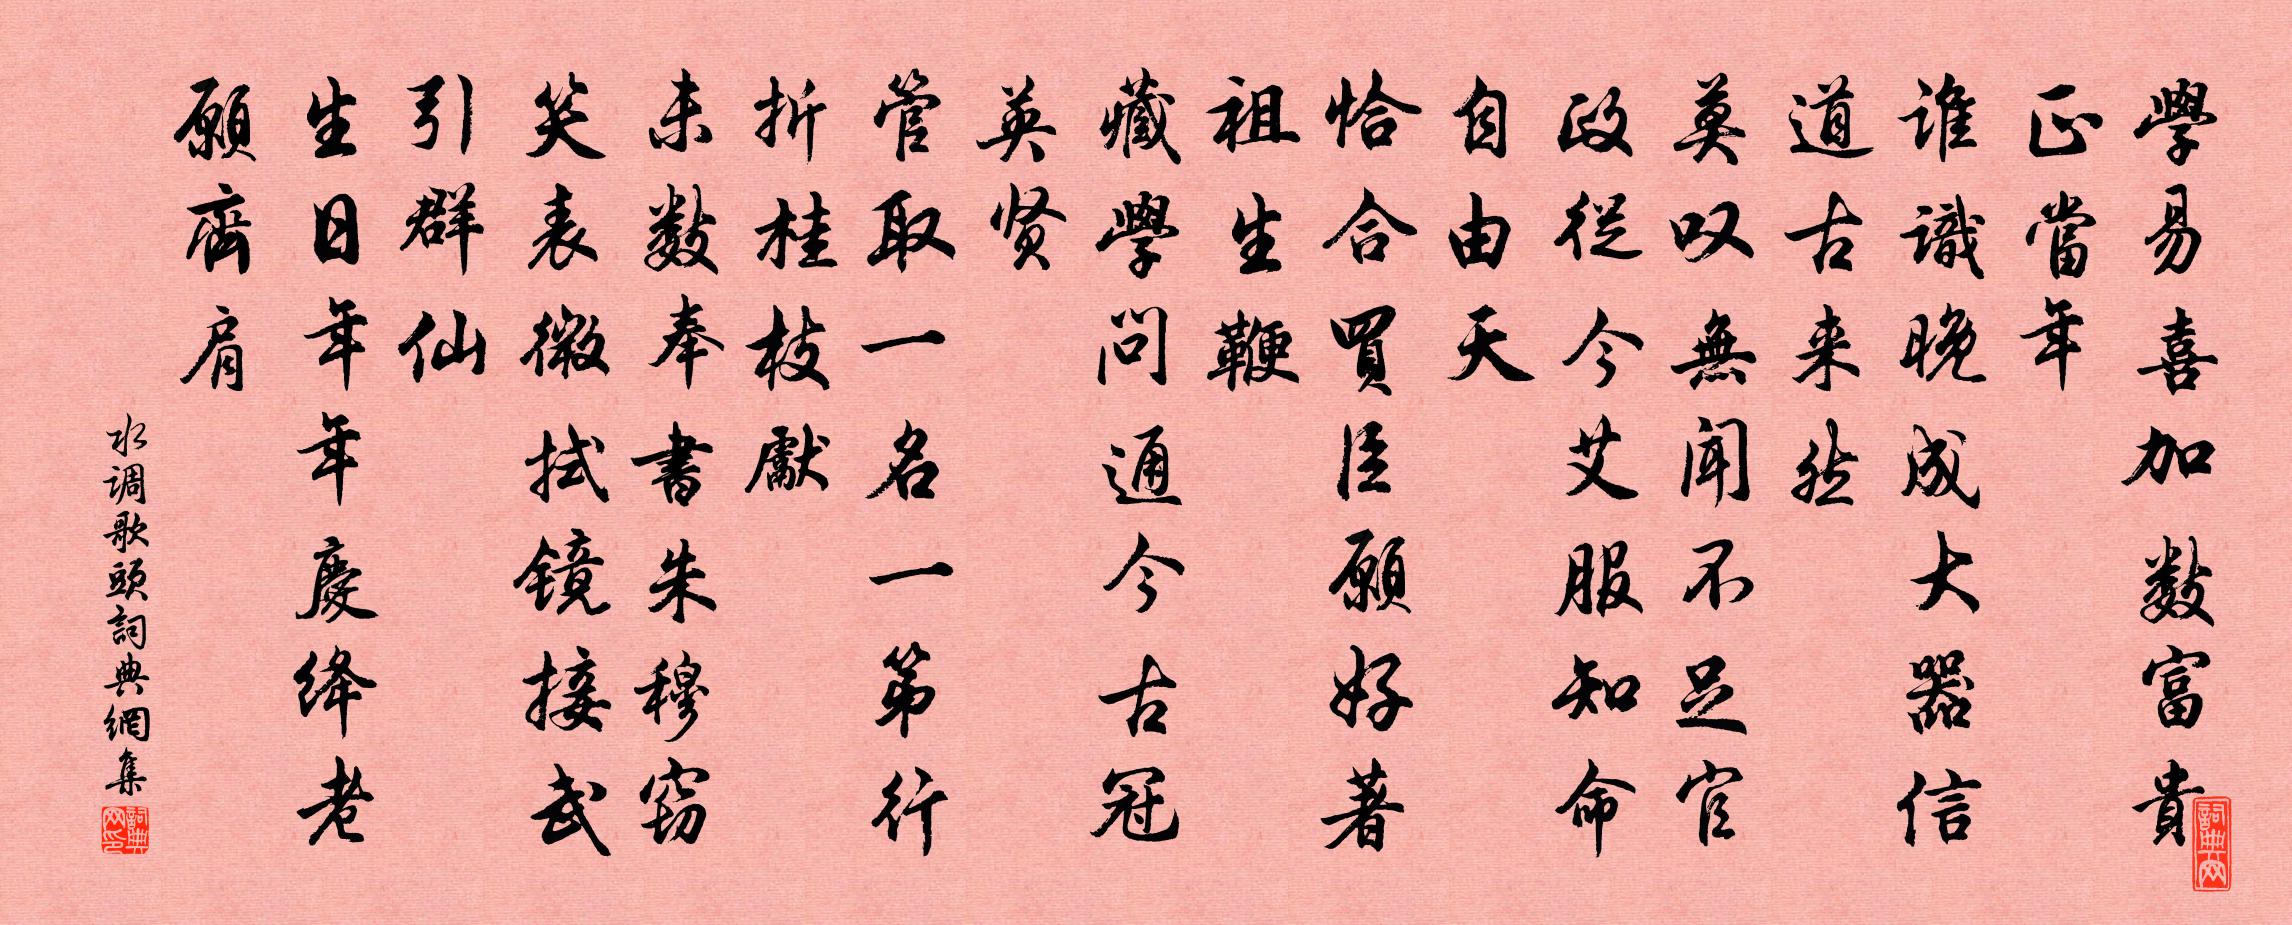 學易喜加数富貴
正當年
谁識晚成大器信
道古来然
莫叹無闻不足官
政從今艾服知命
自由天
恰合買臣願好著
祖生鞭
藏學问通今古冠
英贤
管取一名一第行
折桂枝獻
未数奉書朱穆窃
笑表微拭镜接武
引群仙
生日年年慶绛老
願齊肩
水调歌頭詞典網集
詞典网
詞典网印